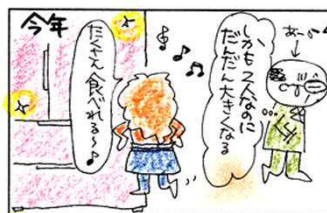 あー
しかも2人なのに
だんだん大きくなる
今年
たくさん食べれる〜♪